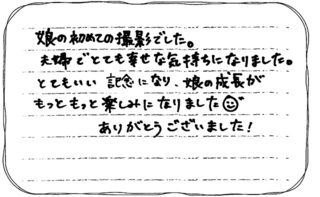 娘の初めての撮影でした。
夫婦でとても幸せな気持ちになりました。
とてもいい記念になり、娘の成長が
もっともっと楽しみになりました
ありがとうございました!